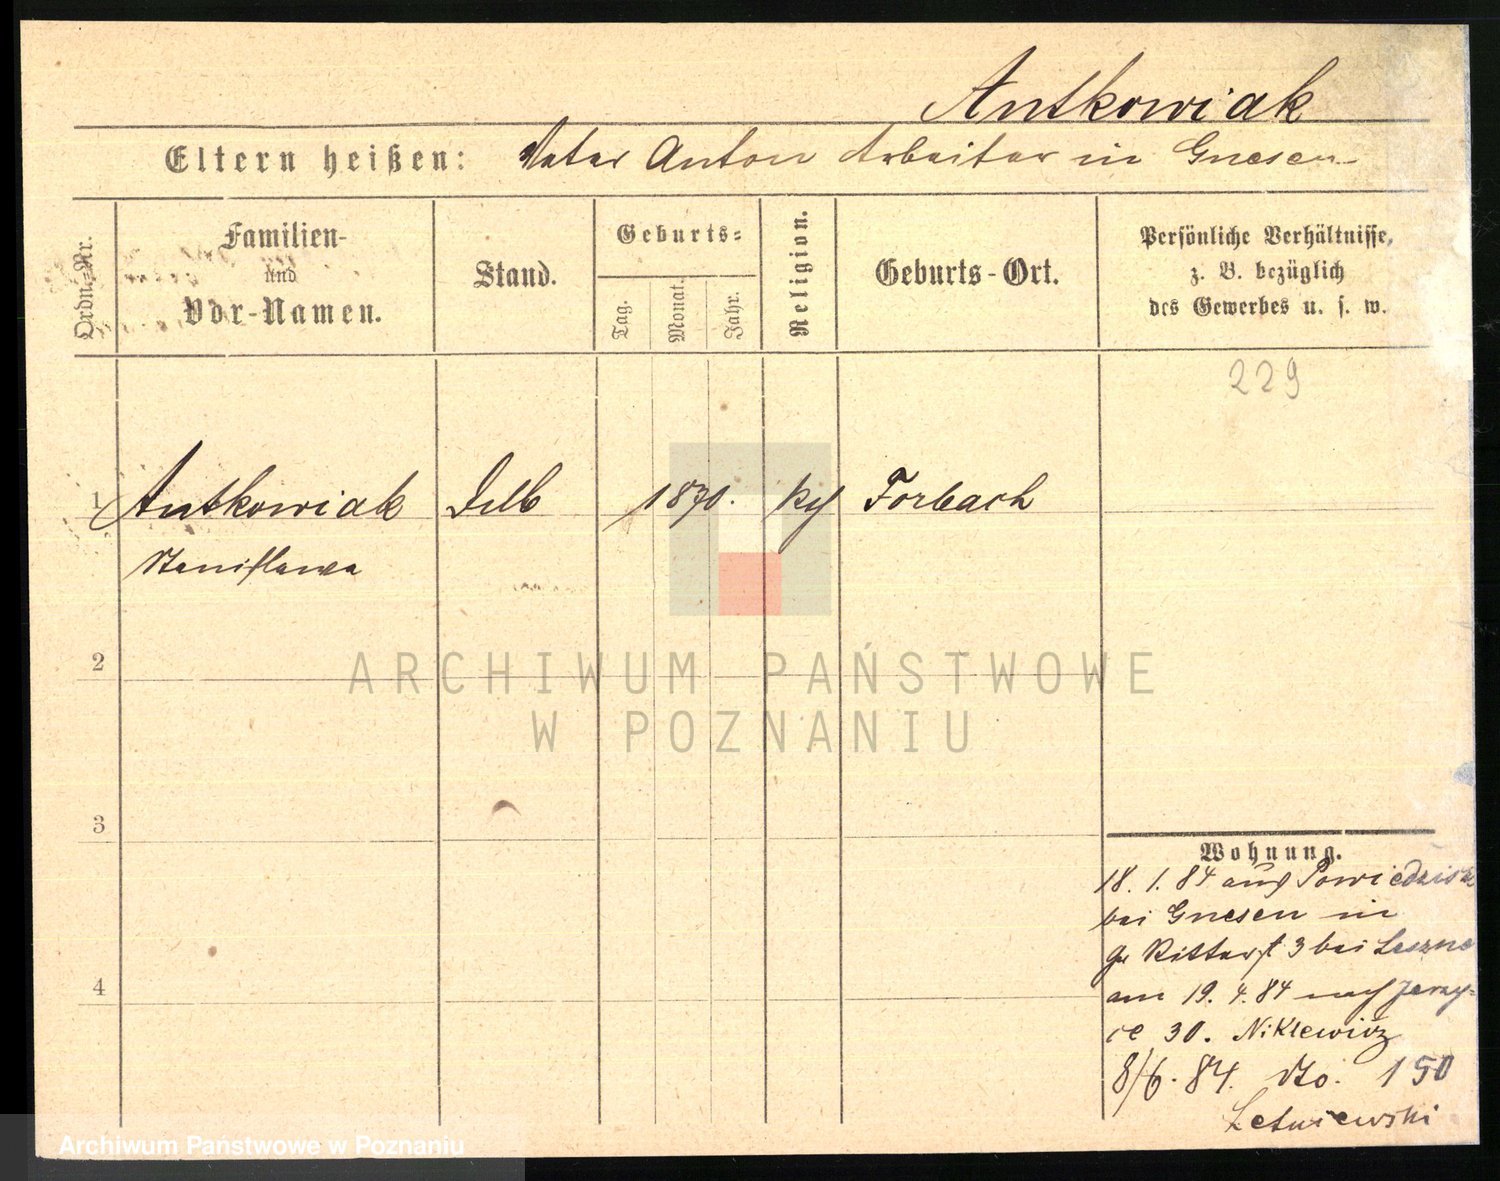 Antkowiak
Eltern heißen: Vater Anton Arbeiter in Gnesen
Ordn.-Nr.
Familien-
und
Vor-Namen.
Stand.
Geburts-
Tag.
Monat.
Jahr.
Religion.
Geburts-Ort.
Persönliche Verhältnisse,
z. B. bezüglich
des Gewerbes u. s. w.
229
1 Antkowiak 1870. Forbach
Stanislawa
2
3
4
Wohnung.
18. 1. 84 aus Powiedzisk
bei Gnesen in
gr Ritterst 3 bei Leszne
am 19. 4. 84 nach Jerzy-
ce 30. Niklewicz
8/6. 84. dto. 150
Letniewski
ARCHIWUM PAŃSTWOWE
W POZNANIU
Archiwum Państwowe w Poznaniu